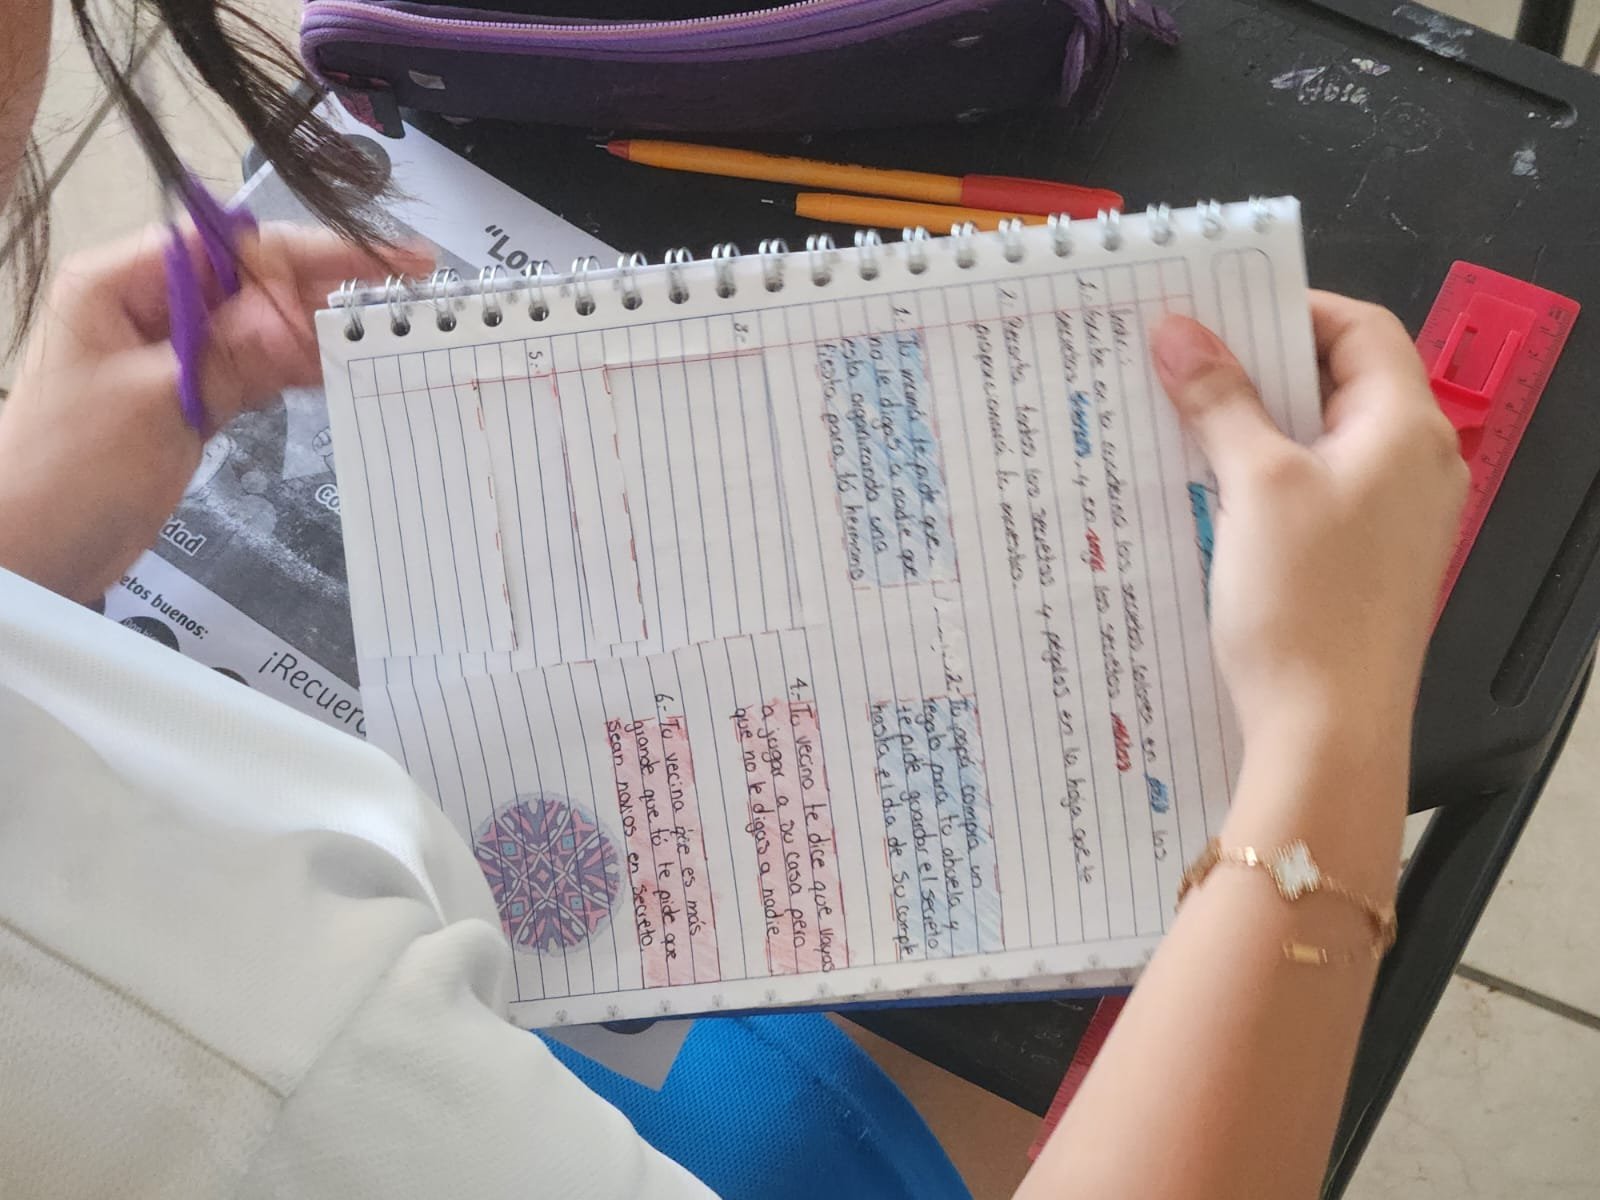 1.- Escribe en tu cuaderno los secretos buenos en azul los
secretos buenos, y en rojo los secretos malos
2.- Recorta todos los secretos y pégalos en la hoja que te
proporcionará tu maestra.
1. Tu mamá te pide que
no le digas a nadie que
esta organizando una
fiesta para tu hermano
2.- Tu papá compra un
regalo para tu abuela y
te pide guardar el secreto
hasta el día de su cumple
3.-
4.- Tu vecino te dice que vayas
a jugar a su casa pero
que no le digas a nadie
5.-
6.- Tu vecina que es más
grande que tú te pide que
sean novios en secreto
"Los
Co
idad
etos buenos:
¡Recuerd